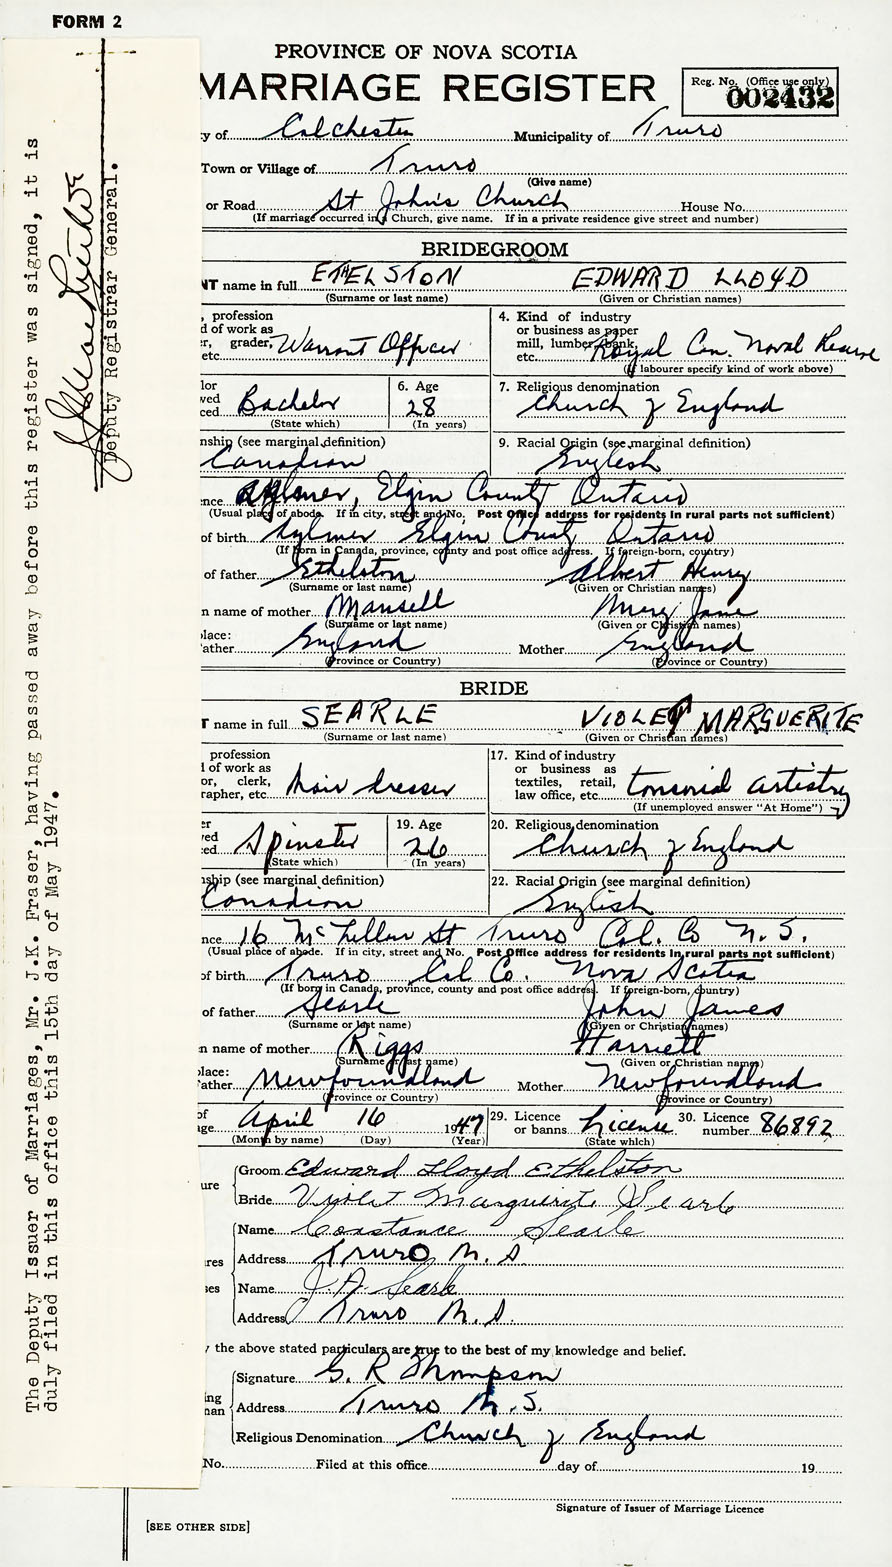 FORM 2
PROVINCE OF NOVA SCOTIA
MARRIAGE REGISTER
Reg. No. (Office use only)
002432
y of Colchester Municipality of Truro
Town or Village of Truro
(Give name)
or Road St John's Church House No.
(If marriage occurred in a Church, give name. If in a private residence give street and number)
BRIDEGROOM
NT name in full ETHELSTON EDWARD LLOYD
(Surname or last name) (Given or Christian names)
, profession
d of work as
r, grader,
etc. Warrant Officer
4. Kind of industry
or business as paper
mill, lumber, bank,
etc. Royal Can. Naval Reserve
(If labourer specify kind of work above)
lor
wed
ced Bachelor
(State which)
6. Age
28
(In years)
7. Religious denomination
Church of England
nship (see marginal definition)
Canadian
9. Racial Origin (see marginal definition)
English
nce Aylmer, Elgin County Ontario
(Usual place of abode. If in city, street and No. Post Office address for residents in rural parts not sufficient)
of birth Aylmer Elgin County Ontario
(If born in Canada, province, county and post office address. If foreign-born, country)
of father Ethelston Albert Henry
(Surname or last name) (Given or Christian names)
n name of mother Mansell Mary Jane
(Surname or last name) (Given or Christian names)
place:
Father England Mother England
(Province or Country) (Province or Country)
BRIDE
T name in full SEARLE VIOLET MARGUERITE
(Surname or last name) (Given or Christian names)
profession
d of work as
or, clerk,
rapher, etc. Hair dresser
17. Kind of industry
or business as
textiles, retail,
law office, etc. tonsorial artistry
(If unemployed answer "At Home")
er
wed
ced. Spinster
(State which)
19. Age
26
(In years)
20. Religious denomination
Church of England
nship (see marginal definition)
Canadian
22. Racial Origin (see marginal definition)
English
nce 16 McLellan St Truro Col. Co N.S.
(Usual place of abode. If in city, street and No. Post Office address for residents in rural parts not sufficient)
of birth Truro Col Co. Nova Scotia
(If born in Canada, province, county and post office address. If foreign-born, country)
of father Searle John James
(Surname or last name) (Given or Christian names)
n name of mother Riggs Harriett
(Surname or last name) (Given or Christian names)
place:
Father Newfoundland Mother Newfoundland
(Province or Country) (Province or Country)
of
age April 16 1947
(Month by name) (Day) (Year)
29. Licence
or banns License
(State which)
30. Licence
number 86892
ure
Groom Edward Lloyd Ethelston
Bride Violet Marguerite Searle
Name Constance Searle
res Address Truro N.S.
ses Name J. A. Searle
Address Truro N.S.
y the above stated particulars are true to the best of my knowledge and belief.
Signature G. R Thompson
ing
man Address Truro N.S.
Religious Denomination Church of England
No. Filed at this office day of 19
Signature of Issuer of Marriage Licence
[SEE OTHER SIDE]
The Deputy Issuer of Marriages, Mr. J.K. Fraser, having passed away before this register was signed, it is
duly filed in this office this 15th day of May 1947.
Deputy Registrar General.